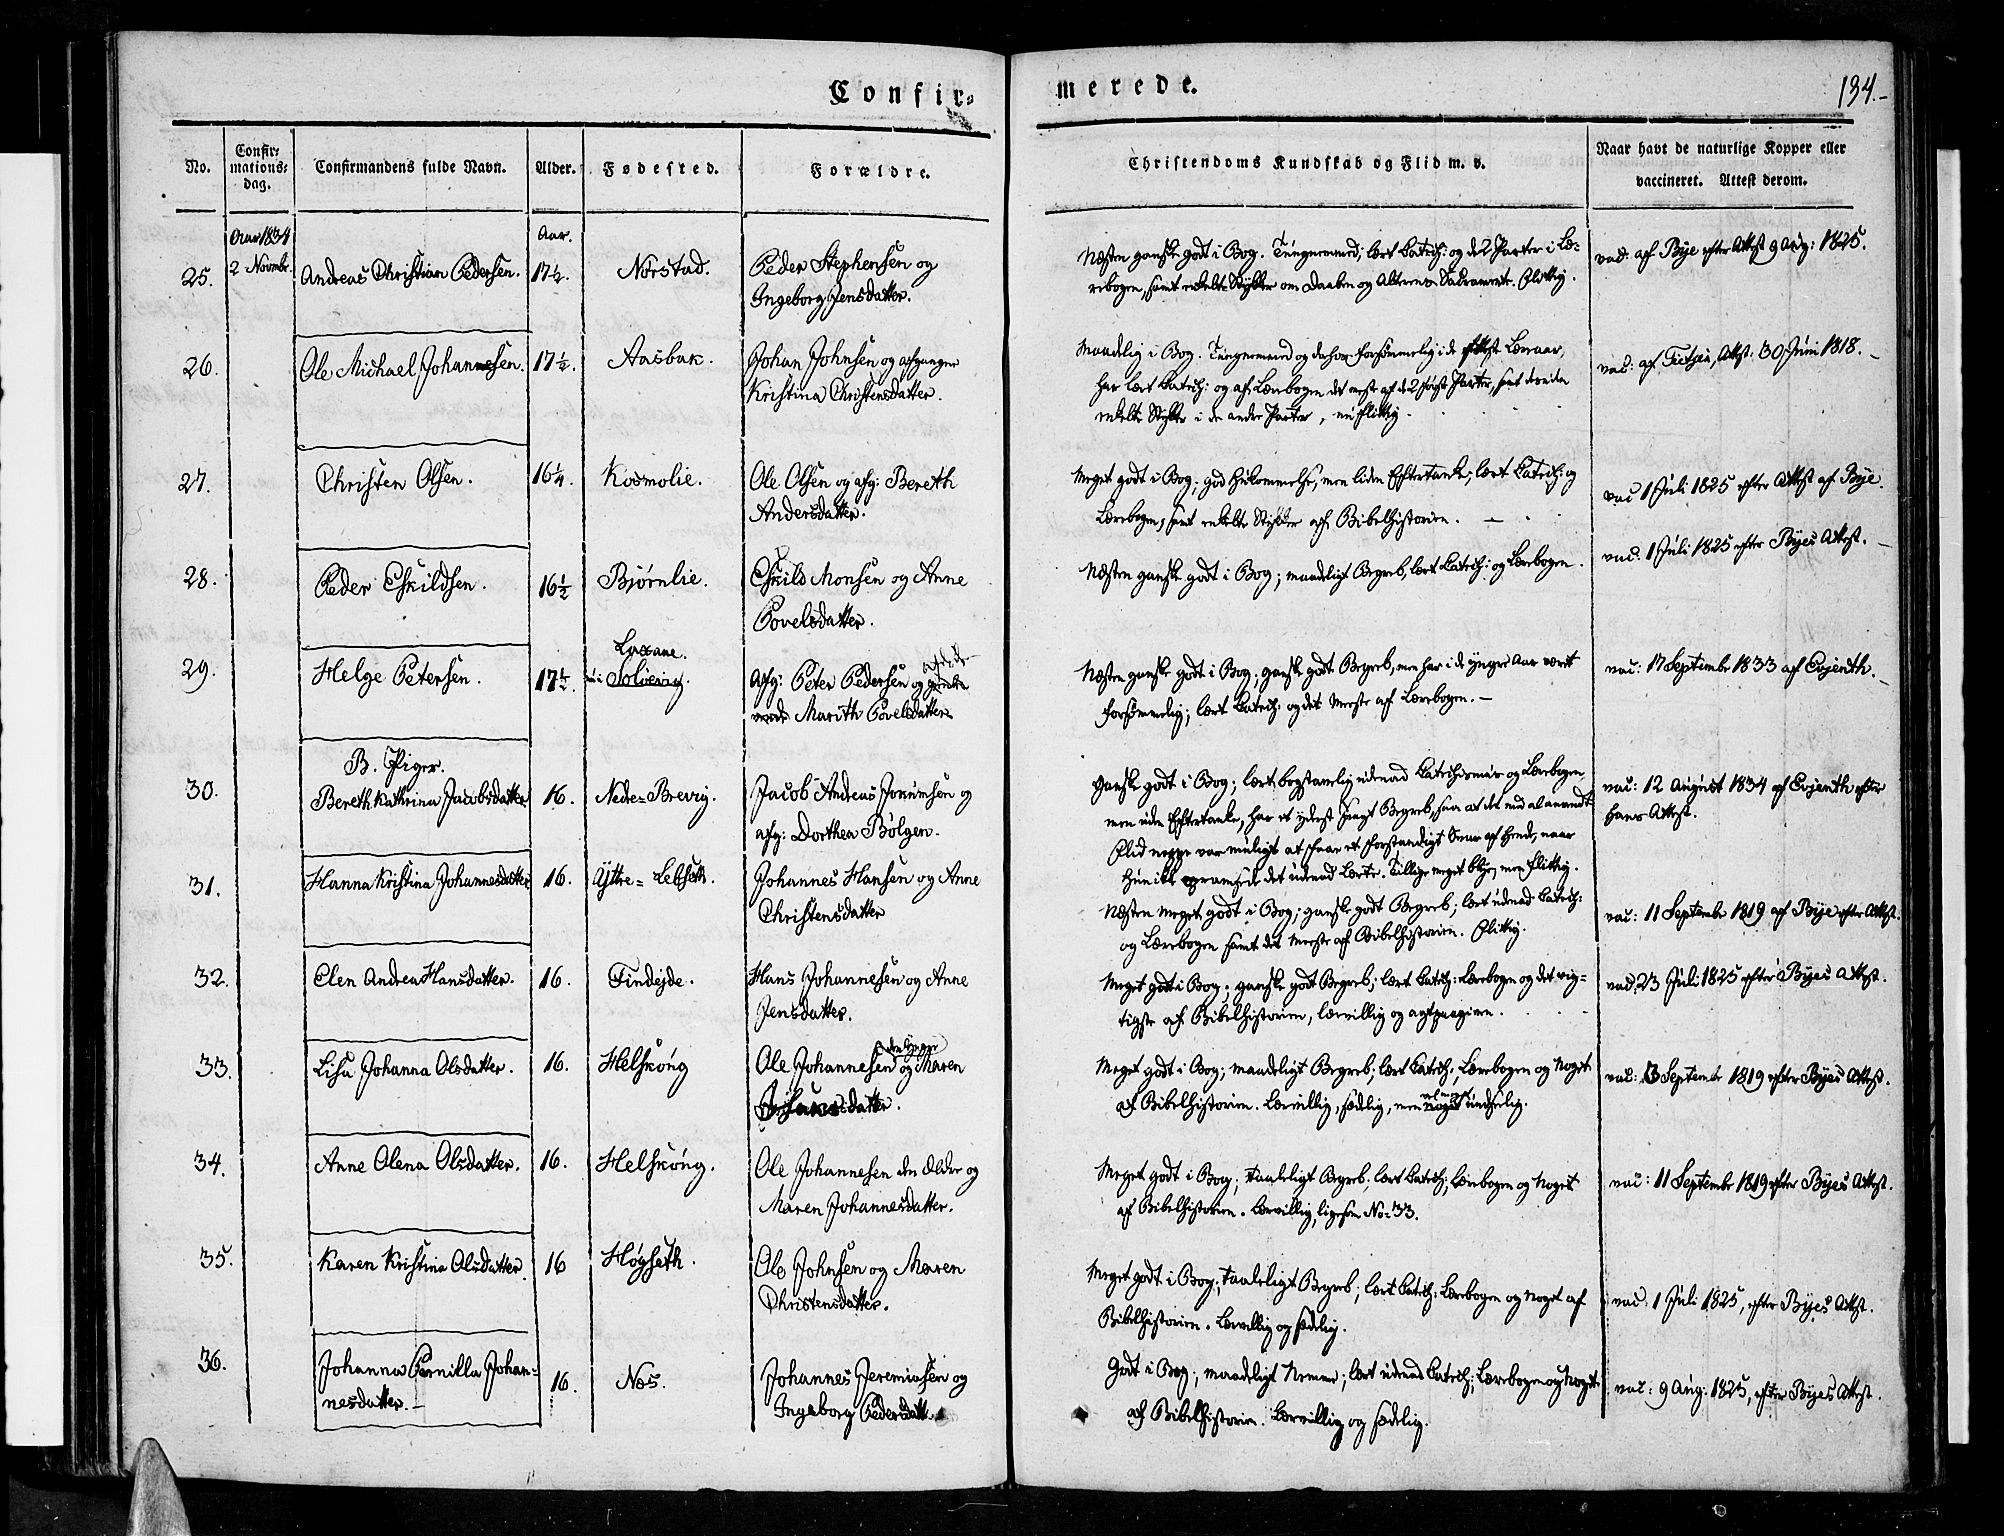 Confir-
merede.
134.-
No.
Confir-
mations-
dag.
Confirmandens fulde Navn.
Alder.
Fødested.
Forældre.
Christendoms Kundskab og Flid m. v.
Naar havt de naturlige Kopper eller
vaccineret. Attest derom.
Aar 1834
2 Novembr.
Aar.
25.
Andreas Christian Pedersen.
17½.
Nørstad.
Peder Stephensen og
Ingeborg Jensdatter.
Næsten ganske godt i Bog. Tungnemmed; lært Catech: og de 2 Parter i Læ-
rebogen, samt enkelte Stykker om Daaben og Alterens Sacramente. Flittig.
vac: af Bye efter Attest 9 Aug: 1825.
26.
Ole Michael Johannesen.
17½.
Aasbak.
Johan Johnsen og afgangne
Kristina Christensdatter.
Maadelig i Bog. Tungnemmed og derhos forsømmelig i de første Læreaar,
har lært Catech: og af Lærebogen det meste af de 2 første Parter, samt desuden
enkelte Stykker i de andre Parter, nu flittig.
vac: af Attest. 30 Juni 1818.
27.
Christen Olsen.
16¼.
Kosmolie.
Ole Olsen og afg: Bereth
Andersdatter.
Meget godt i Bog; god Hukommelse, men liden Eftertanke; lært Catech: og
Lærebogen, samt enkelte Stykker af Bibelhistorien.
vac 1 Juli 1825 efter Attest af Bye.
28.
Peder Eskildsen.
16½
Bjørnlie.
Eskild Monsen og Anne
Povelsdatter.
Næsten ganske godt i Bog; maadeligt Begreb, lært Catech: og Lærebogen.
vac. 1 Juli 1825 efter Byes Attest.
29.
Helge Petersen.
17½.
Laxane.
Afg: Peter Pedersen og
Marith Povelsdatter
Næsten ganske godt i Bog; ganske godt Begreb, men har i de yngre Aar været
forsømmelig; lært Catech: og det Meste af Lærebogen.
vac: 17 September 1833 af Evjenth.
B. Piger.
30.
Bereth Kathrina Jacobsdatter
16.
Nedre-Brevig.
Jacob Andreas Joramsen og
afg: Dorthea Bølgen.
Ganske godt i Bog; lært bogstavelig udenad Catechismus og Lærebogen
men uden Eftertanke, har et yderst svagt Begreb, saa at det med al anvendt
Flid neppe var muligt at faae et forstandigt Svar af hende, naar
hun ikke det udenad Lærte. Tillige meget blye, men flittig.
vac: 12 August 1834 af Evjenth efter
hans Attest.
31.
Hanna Kristina Johannesdatter
16.
Yttre-Lebseth.
Johannes Hansen og Anne
Christensdatter
Næsten meget godt i Bog; ganske godt Begreb; lært udenad Catech:
og Lærebogen samt det meeste af Bibelhistorien. Flittig.
vac: 11 September 1819 af Bye efter Attest.
32.
Elen Andrea Hansdatter.
16.
Findejde.
Hans Johannesen og Anne
Jensdatter.
Meget godt i Bog; ganske godt Begreb; lært Catech: Lærebogen og det vig-
tigste af Bibelhistorien, lærvillig og agtpaagiven.
vac. 23 Juli 1825 efter Byes Attest.
33.
Lisa Johanna Olsdatter.
16.
Helskóng
den Yngre
Ole Johannesen og Maren
Meget godt i Bog; maadeligt Begreb; lært Catech:, Lærebogen og Noget
af Bibelhistorien. Lærvillig, sædelig, men undseelig.
vac: 3 September 1819 efter Byes Attest.
34.
Anne Olena Olsdatter.
16.
Helskóng.
Ole Johannesen den Ældre og
Maren Johannesdatter.
Meget godt i Bog; taaleligt Begreb; lært Catech:, Lærebogen og Noget
af Bibelhistorien. Lærvillig, ligesom No: 33.
vac: 11 September 1819 efter Byes Attest.
35.
Karen Kristina Olsdatter
16
Høgseth.
Ole Johnsen og Maren
Christensdatter.
Meget godt i Bog; taaleligt Begreb; lært Catech: Lærebogen og Noget af
Bibelhistorien. Lærvillig og sædelig.
vac: 1 Juli 1825, efter Byes Attest.
36.
Johanna Pernilla Johan-
nesdatter.
16.
Næs.
Johannes Jeremiasen og
Ingeborg Pedersdatt.
Godt i Bog; maadeligt Nemme; lært udenad Catech:, Lærebogen og Noget
af Bibelhistorien. Lærvillig og sædelig.
vac: 9 Aug: 1825, efter Byes Attest.